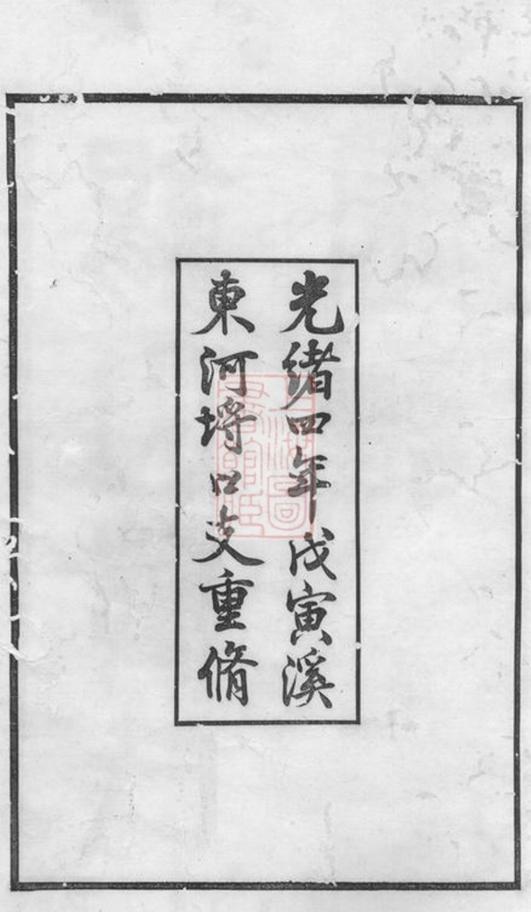 光緒四年戊寅溪
東河埒口支重脩